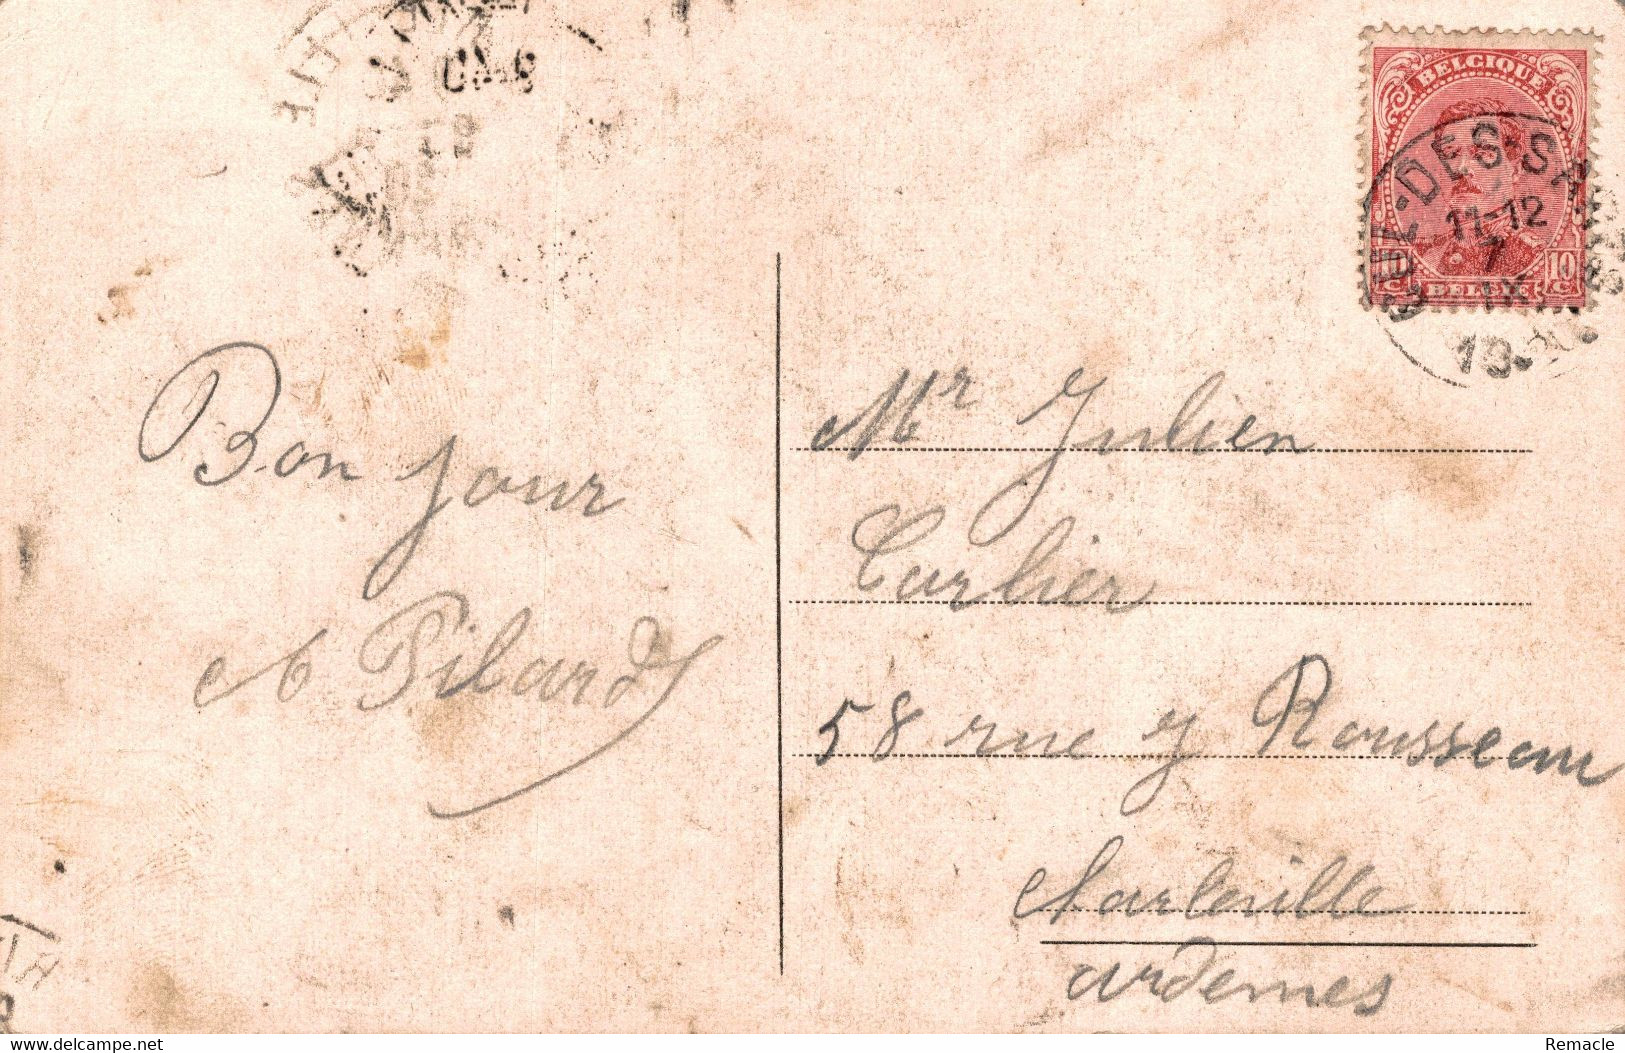 BELGIQUE
10 C
10 C
BELGIE
DES-SA
11-12
7
IX
Bonjour
Pilard
Mr Julien
Carlier
58 rue J Rousseau
Charleville
ardennes
delcampe.net
Remacle